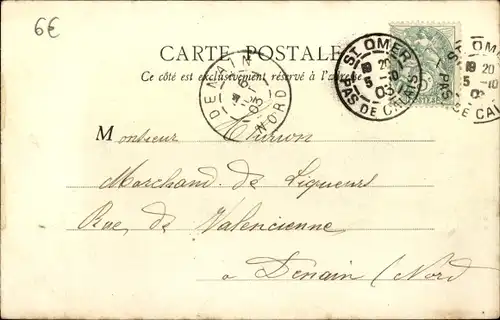 6€
CARTE POSTALE
Ce côté est exclusivement réservé à l'adresse
DENAIN
NORD
03
ST OMER
20
5 - 10
03
PAS DE CALAIS
5
POSTES
OMER
20
5 - 10
03
PAS DE CAL
Monsieur
Marchand de Liqueurs
Rue de Valencienne
à Denain (Nord